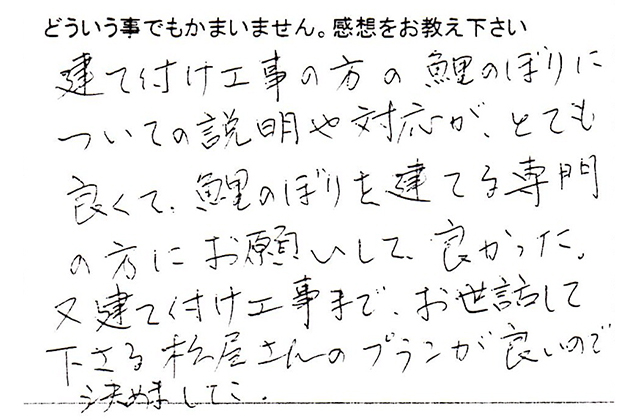 どういう事でもかまいません。感想をお教え下さい
建て付け工事の方の鯉のぼりに
ついての説明や対応が、とても
良くて、鯉のぼりを建てる専門
の方にお願いして、良かった。
又建て付け工事まで、お世話して
下さる松屋さんのプランが良いので
決めました。